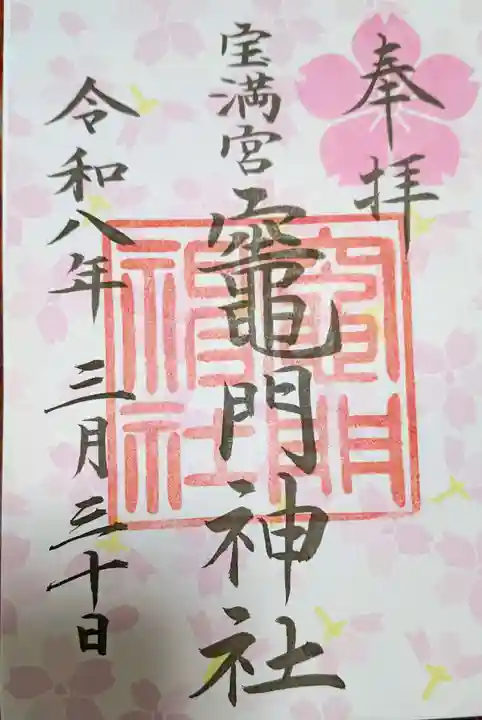 奉拝
宝満宮竈門神社
竈門神社
令和八年三月三十日